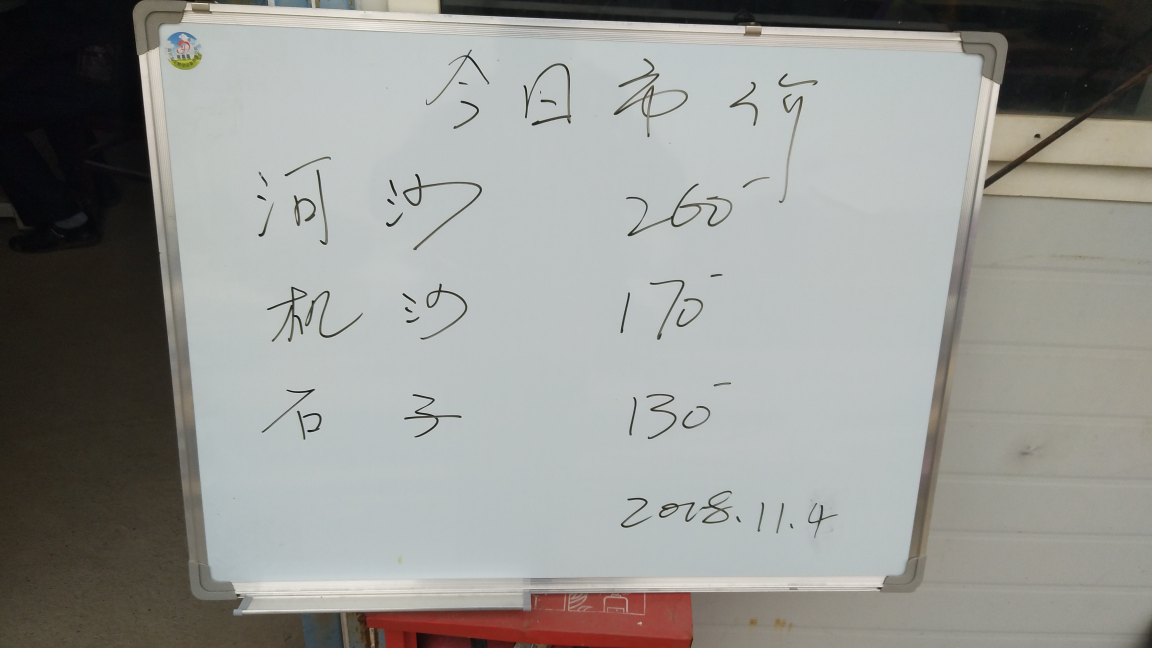 今日市价
河沙 260-
机沙 170-
石子 130-
2018.11.4